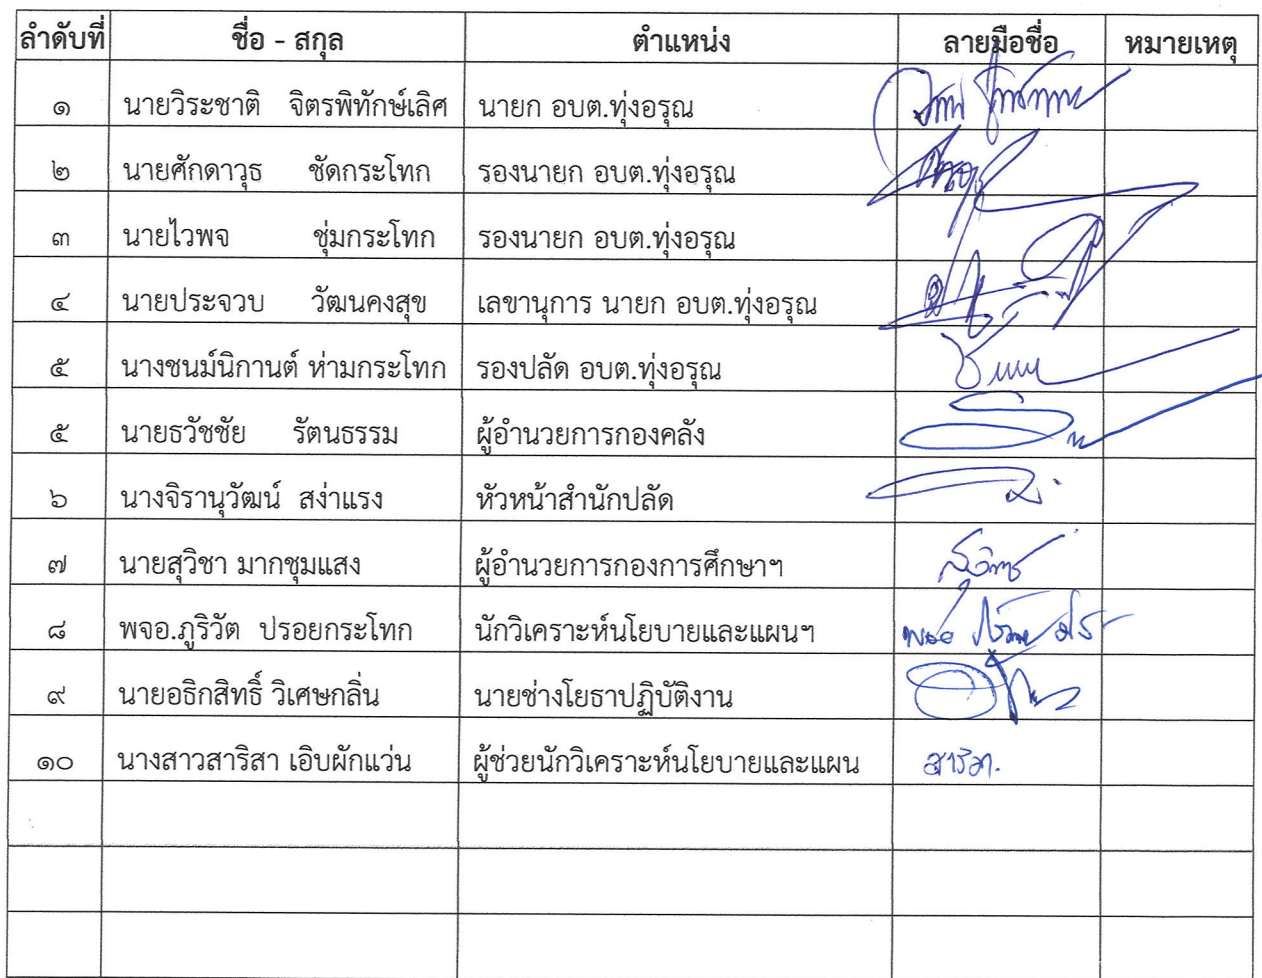 ลำดับที่ ชื่อ - สกุล ตำแหน่ง ลายมือชื่อ หมายเหตุ
๑ นายวิระชาติ จิตรพิทักษ์เลิศ นายก อบต.ทุ่งอรุณ
๒ นายศักดาวุธ ชัดกระโทก รองนายก อบต.ทุ่งอรุณ
๓ นายไวพจ ชุ่มกระโทก รองนายก อบต.ทุ่งอรุณ
๔ นายประจวบ วัฒนคงสุข เลขานุการ นายก อบต.ทุ่งอรุณ
๕ นางชนม์นิกานต์ ห่ามกระโทก รองปลัด อบต.ทุ่งอรุณ
๕ นายธวัชชัย รัตนธรรม ผู้อำนวยการกองคลัง
๖ นางจิรานุวัฒน์ สง่าแรง หัวหน้าสำนักปลัด
๗ นายสุวิชา มากชุมแสง ผู้อำนวยการกองการศึกษาฯ
๘ พจอ.ภูริวัต ปรอยกระโทก นักวิเคราะห์นโยบายและแผนฯ
๙ นายอธิกสิทธิ์ วิเศษกลิ่น นายช่างโยธาปฏิบัติงาน
๑๐ นางสาวสาริสา เอิบผักแว่น ผู้ช่วยนักวิเคราะห์นโยบายและแผน